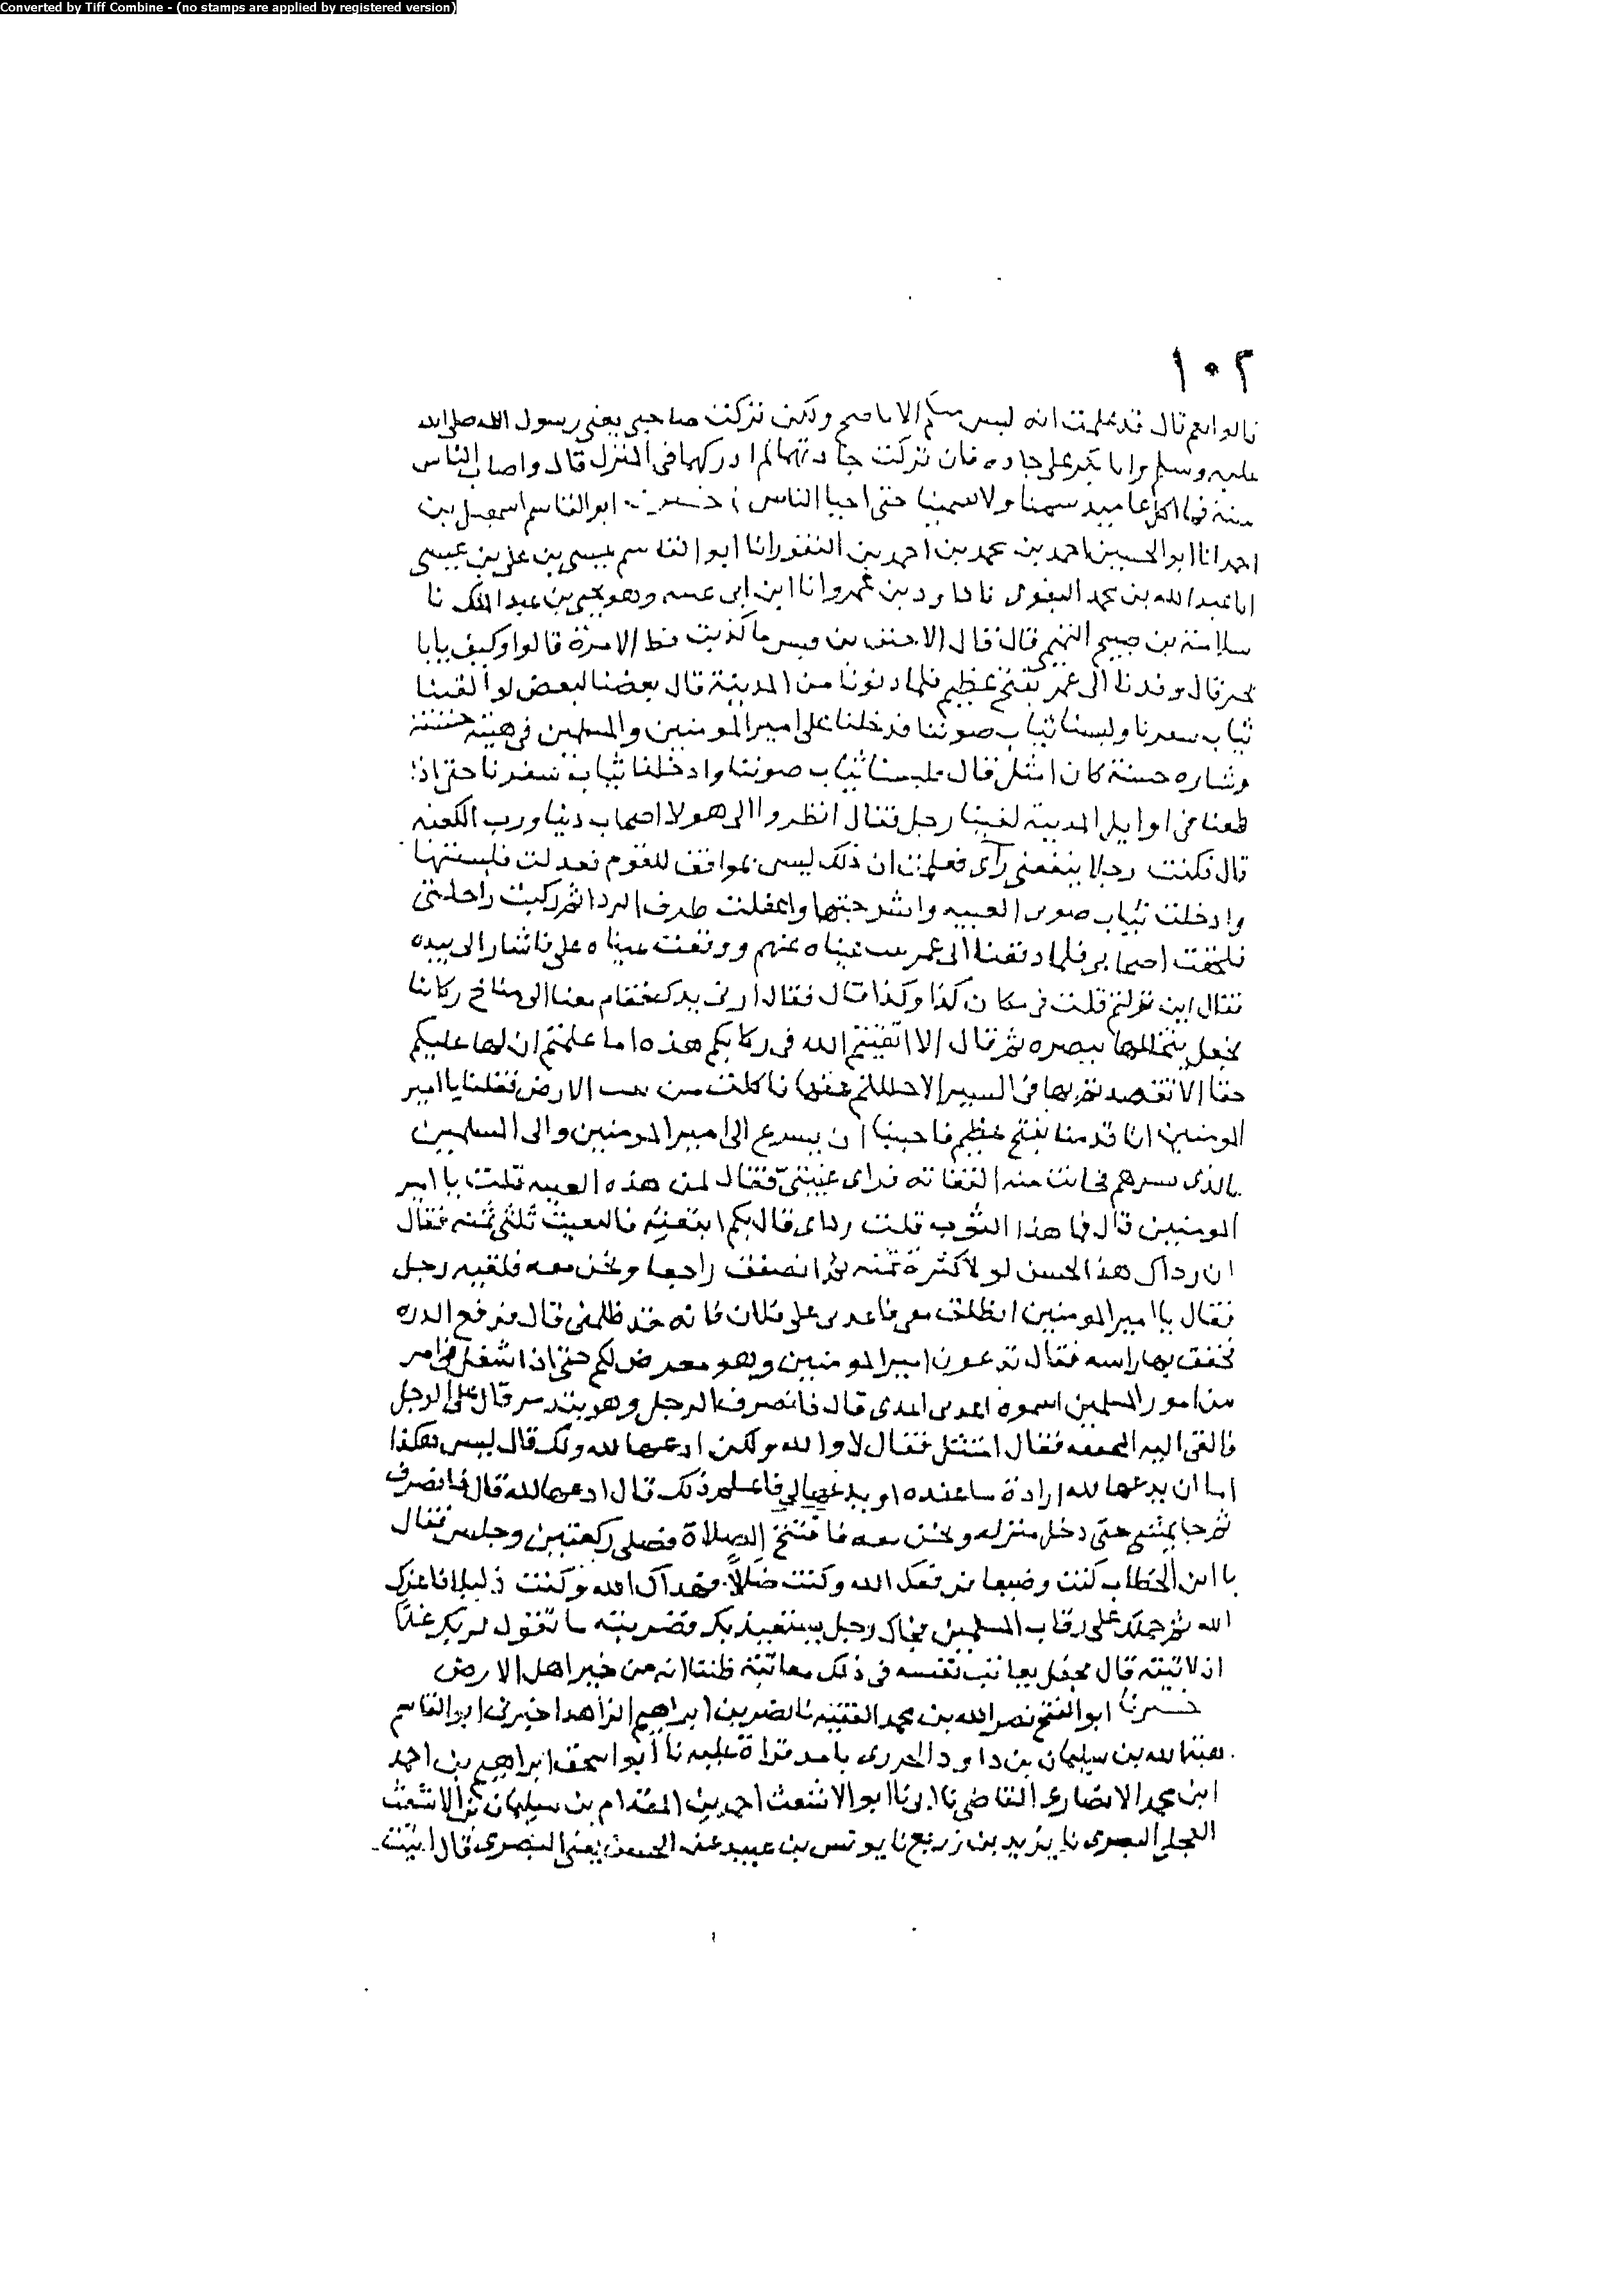 Converted by Tiff Combine - (no stamps are applied by registered version)
١٠٢
قالوا نعم قال قد علمت انه ليس منكم الا ناصح ولكن تركت صاحبي يعني رسول الله صلى الله
عليه وسلم وابا بكر على جاده فان تركت جادتهما لم ادركهما في المنزل قال واصاب الناس
سنة فما اكل عاميذ سمنا ولا سمينا حتى احيا الناس ابو القاسم اسمعيل بن
احمد انا ابو الحسين احمد بن محمد بن احمد بن النقور انا ابو القاسم عيسى بن علي بن عيسى
انا عبد الله بن محمد البغوى نا داود بن عمرو انا ابن ابى عسه وهو يحيى بن عبد الملك نا
سلامة بن صبيح التميمي قال قال الاحنف بن قيس ما كذبت قط الا مرة قالوا وكيف يا با
بحر قال وفدنا الى عمر بفتح عظيم فلما دنونا من المدينة قال بعضنا لبعض لو القينا
ثياب سفرنا ولبسنا ثياب صوننا فدخلنا على امير المومنين والمسلمين في هيئة حسنة
وشاره حسنة كان امثل قال فلبسنا ثياب صوننا وادخلنا ثياب سفرنا حتى اذا
طعنا في اوايل المدينة لقينا رجل فقال انظروا الى هولا اصحاب دنيا ورب الكعبه
قال فكنت رجلا ينفعني رأى فعلمت ان ذلك ليس بموافق للقوم فعدلت فلبستها
وادخلت ثياب صونى العيبه واشرجتها واغفلت طرف الردا ثم ركبت راحلتى
فلحقت اصحابى فلما دفعنا الى عمر نبت عيناه عنهم ووقعت عيناه على فاشار الى بيده
فقال اين نزلتم قلت في مكان كذا وكذا قال فقال ارنى يدك فقام معنا الى مناخ ركابنا
فجعل يتخللها ببصره ثم قال الا اتقيتم الله في ركابكم هذه اما علمتم ان لها عليكم
حقا الا تقصدتم بها في السير الا حللتم عنها فاكلت من نبت الارض فقلنا يا امير
المومنين انا قدمنا بفتح عظيم فاحببنا ان يسرع الى امير المومنين والى المسلمين
بالذى يسرهم فحانت منه التفاته فراى عيبتى فقال لمن هذه العيبه قلت يا امير
المومنين قال فما هذا الثوب قلت رداى قال بكم ابتعته فالقيت ثلثى ثمنه فقال
ان رداك هذا لحسن لولا كثرة ثمنه ثم انصفق راجعا ونحن معه فلقيه رجل
فقال يا امير المومنين انطلق معى فاعدنى على فلان فانه قد ظلمنى قال فرفع الدره
فخفق بها راسه فقال تدعون امير المومنين وهو معرض لكم حتى اذا شغل في امر
من امور المسلمين اتيتموه اعدنى اعدنى قال فانصرف الرجل وهو يتذمر قال على الرجل
فالقى اليه المخفقه فقال امتثل فقال لا والله ولكن ادعها لله ولك قال ليس هكذا
اما ان يدعها لله ارادة ما عنده او يدعها لي فاعلم ذلك قال ادعها لله قال فانصرف
ثم جا يمشى حتى دخل منزله ونحن معه فافتتح الصلاة فصلى ركعتين وجلس فقال
يا ابن الخطاب كنت وضيعا فرفعك الله وكنت ضالا فهداك الله وكنت ذليلا فاعزك
الله ثم حملك على رقاب المسلمين فجاك رجل يستعيذ بك فضربته ما تقول لربك غدا
اذا اتيته قال فجعل يعاتب نفسه في ذلك معاتبة ظننا انه من خير اهل الارض
اخبرنا ابو الفتح نصر الله بن محمد الفقيه نا نصر بن ابراهيم الزاهد اخبرنى ابو القاسم
هبة الله بن سليمان بن داود الجزرى بامد قراة عليه نا ابو اسحق ابراهيم بن احمد
ابن محمد الانصارى القاضي نا ابى نا ابو الاشعث احمد بن المقدام بن سليمان بن الاشعث
العجلي البصرى نا يزيد بن زريع نا يونس بن عبيد عن الحسن يعنى البصرى قال اتيت